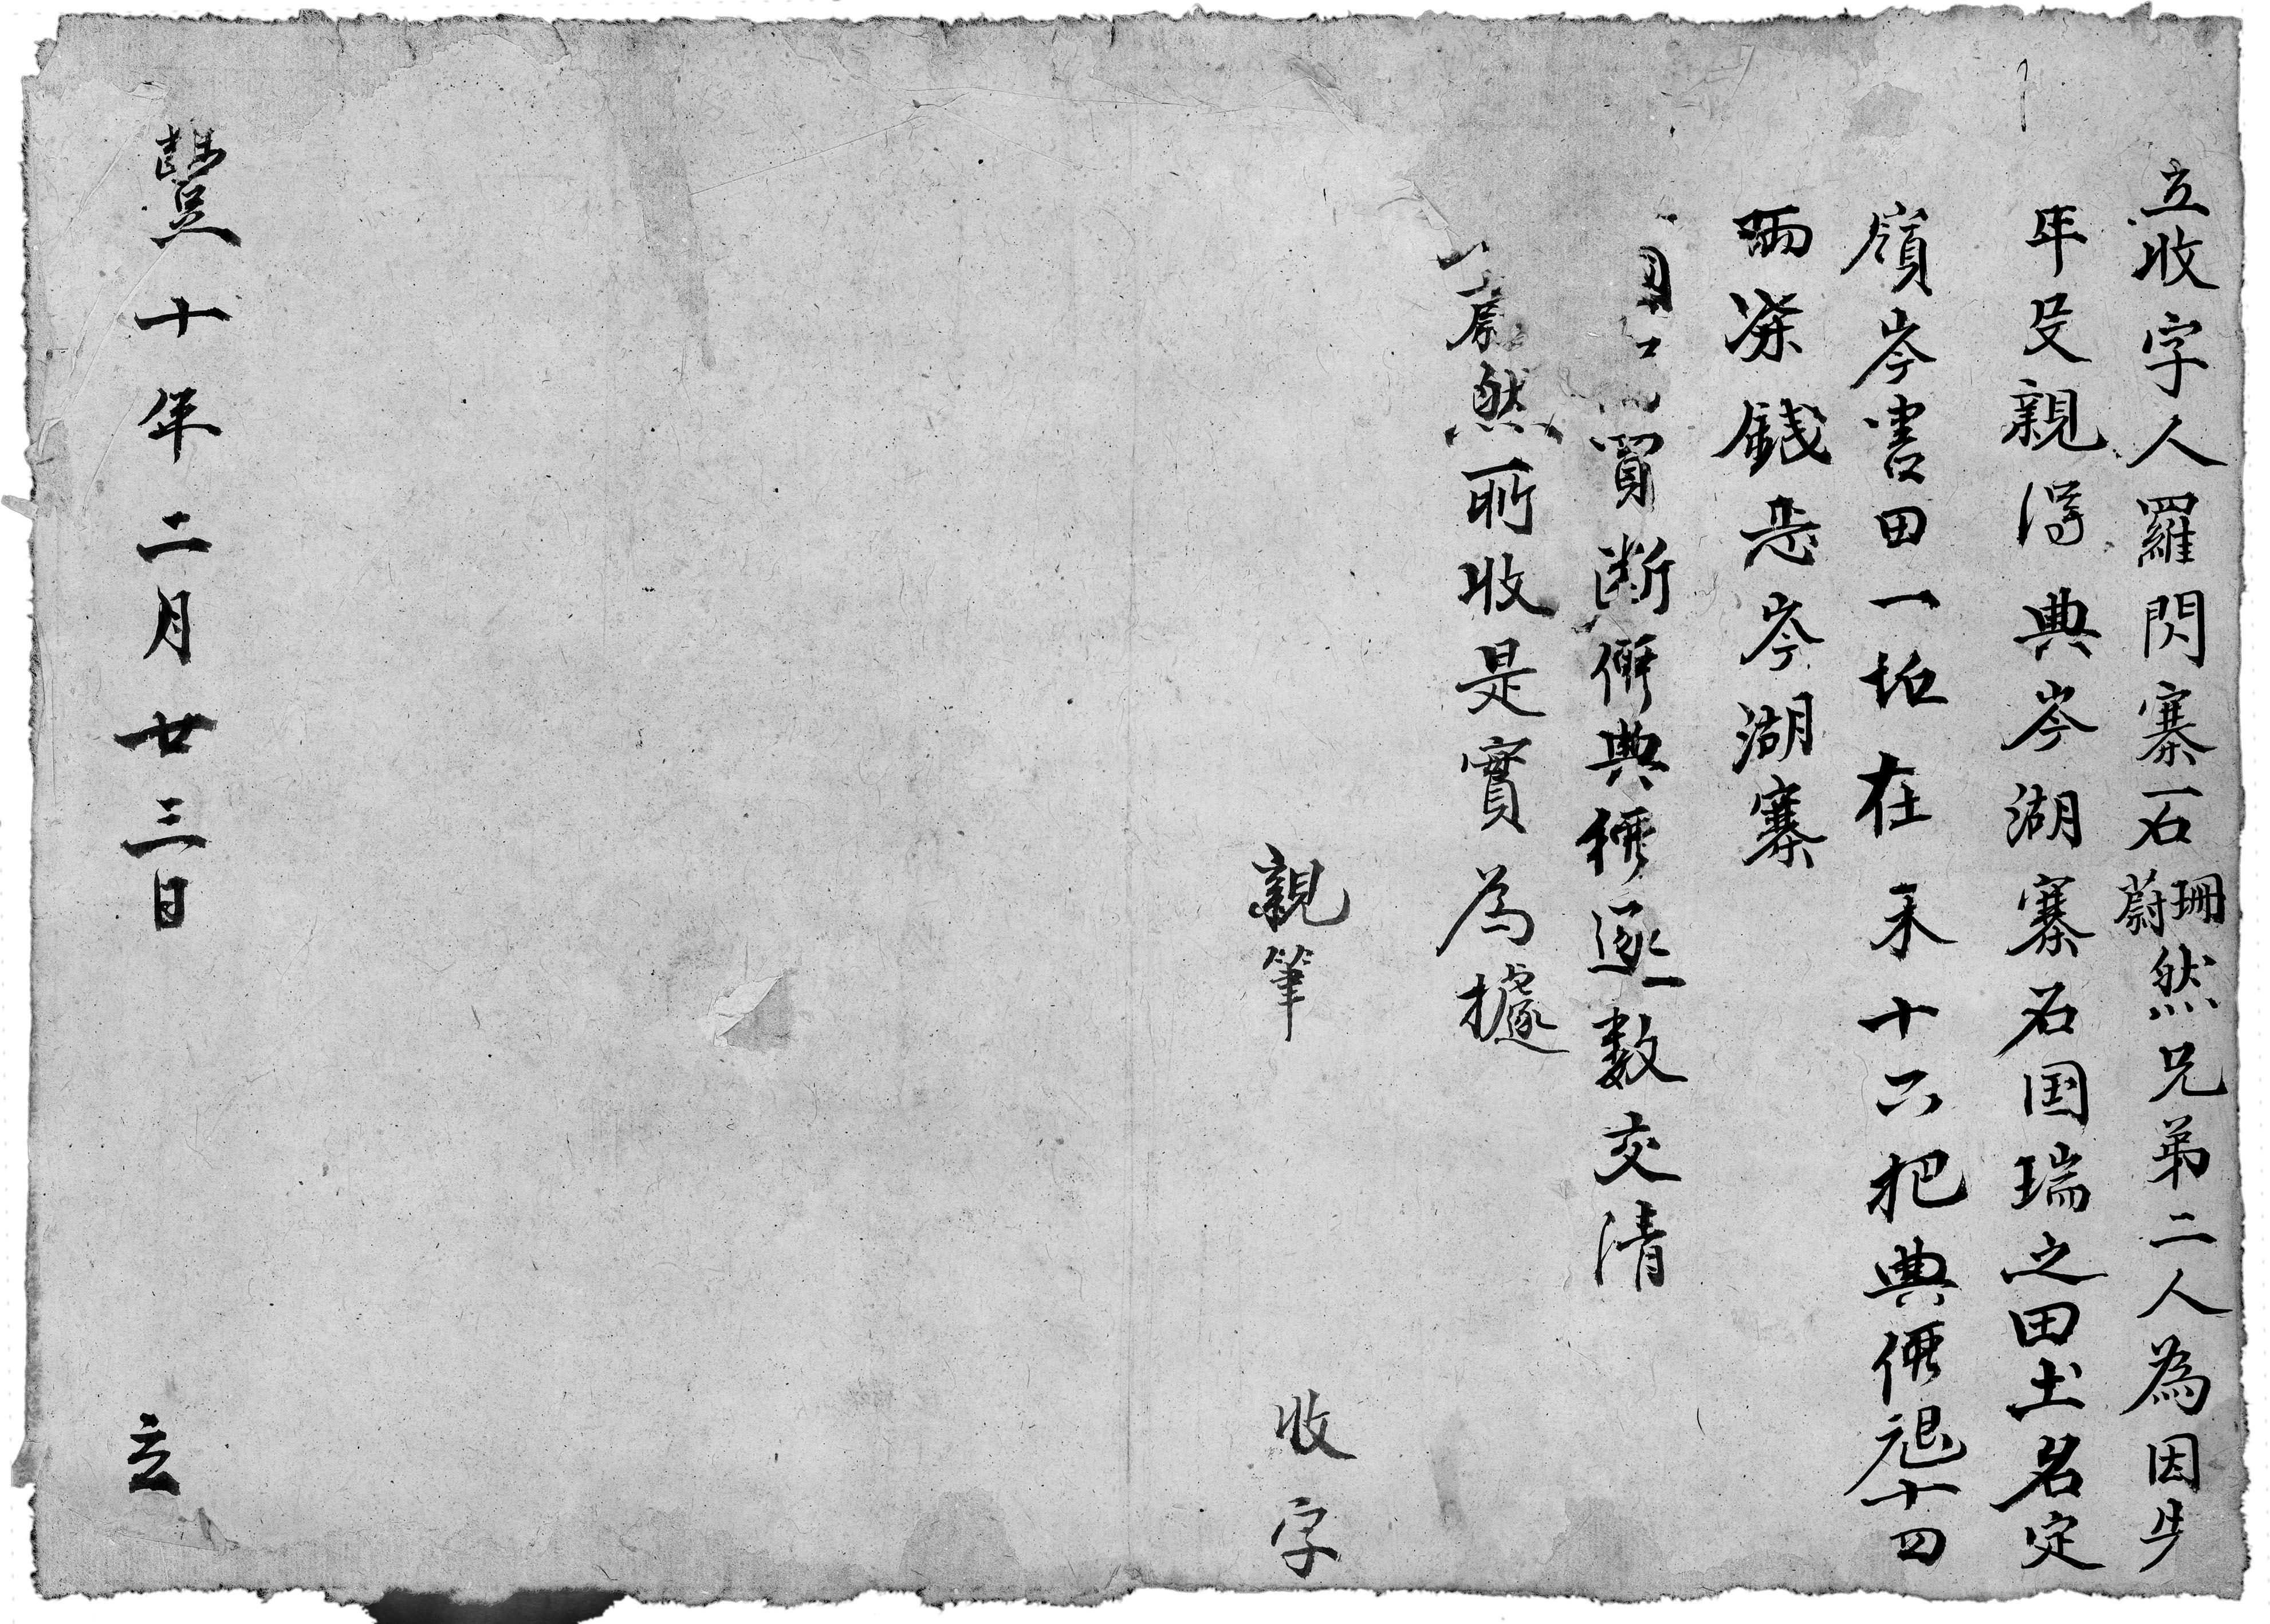 立收字人羅閃寨石珊蔚然兄弟二人為因先
年父親得典岑湖寨石国瑞之田土名定
嶺岑書田一坵在禾十六把典價艮十四
兩柒錢恁岑湖寨
買斷價典穪逐一數交清
蔚然所收是實為據
親筆 收字
豐十年二月廿三日 立